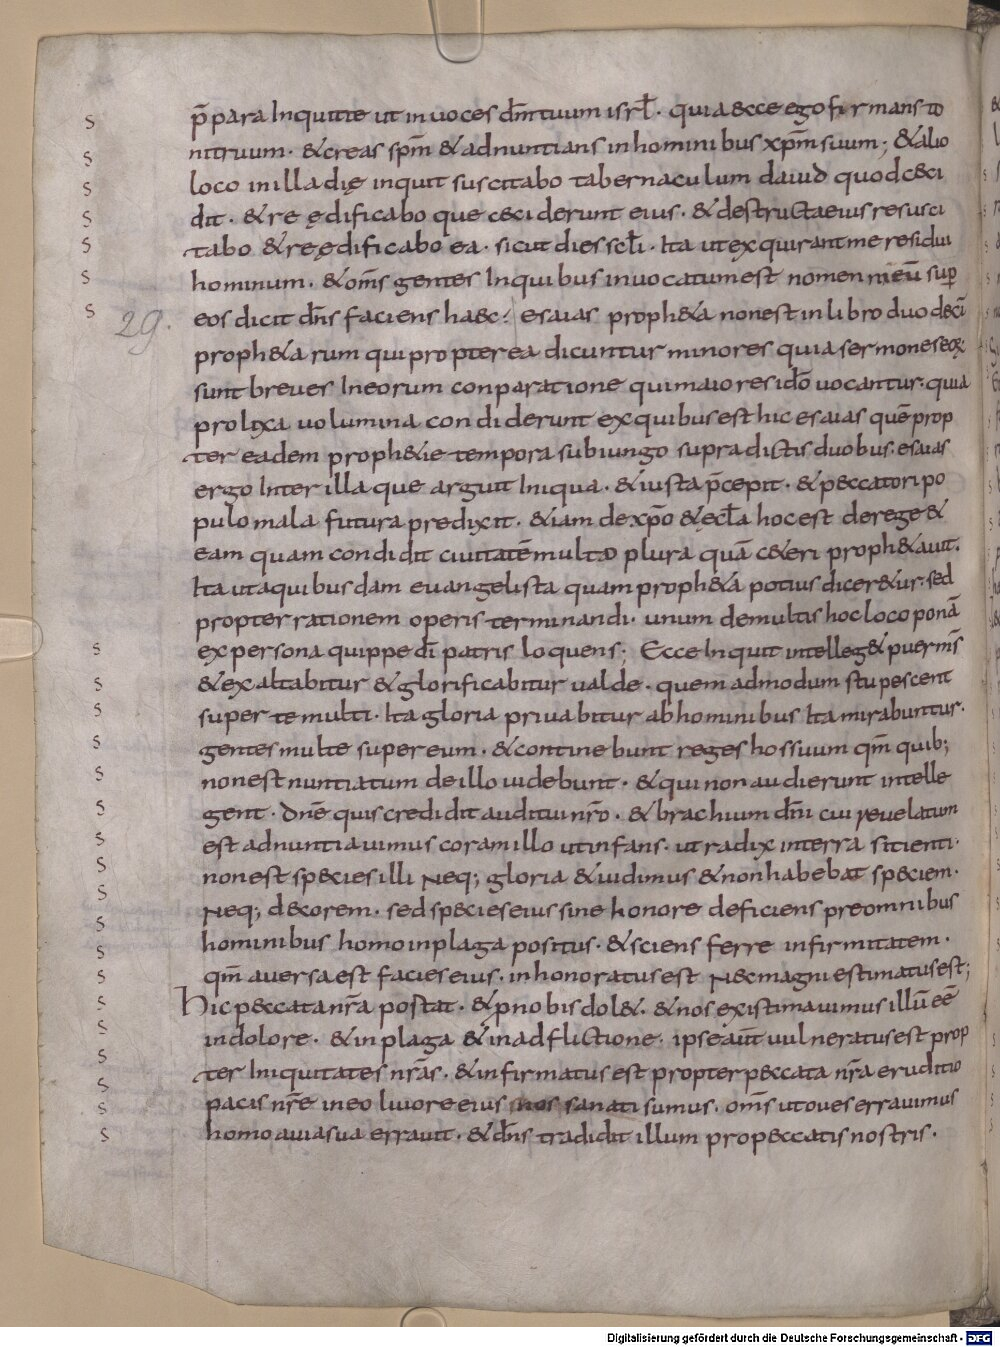 p̄para Inquitte ut inuoces dm̄ tuum isrl̄. quia &cce ego firmans to
nitruum. & creas spm̄ & adnuntians in hominibus xpm̄ suum; & alio
loco in illa die inquit suscitabo tabernaculum dauid quod c&ci
dit. & reędificabo que c&ciderunt eius. & destructa eius resusci
tabo & reędificabo ea. sicut dies scl̄i. Ita ut exquirant me residui
hominum. & om̄s gentes In quibus inuocatum est nomen meū sup
eos dicit dn̄s faciens haec; esaias proph&a non est in libro duodecī
29.
proph&arum qui propterea dicuntur minores quia sermones eoꝝ
sunt breues In eorum conparatione qui maiores idō uocantur. quia
prolixa uolumina condiderunt ex quibus est hic esaias quē prop
ter eadem proph&ie tempora subiungo supradictis duobus. esaias
ergo Inter illa que arguit Iniqua. & iusta p̄cepit. & p&ccatori po
pulo mala futura predixit. & iam de xp̄o & ecl̄a hoc est de rege &
eam quam condidit ciuitatē multo plura quā c&eri proph&auit.
Ita ut a quibusdam euangelista quam proph&a potius dicer&ur. sed
propter rationem operis terminandi. unum de multis hoc loco ponā
ex persona quippe dī patris loquens; Ecce Inquit intelleg& puer m̄s
& exaltabitur & glorificabitur ualde. quem admodum stupescent
super te multi. Ita gloria priuabitur ab hominibus Ita mirabuntur.
gentes multe super eum. & continebunt reges hos suum qm̄ quib;
non est nuntiatum de illo uidebunt. & qui non audierunt intelle
gent. Dnē quis credidit auditui nr̄o. & brachium dn̄i cui reuelatum
est adnuntiauimus coram illo ut infans. ut radix in terra sitienti.
non est sp&cies illi Neq; gloria & uidimus & non habebat sp&ciem.
Neq; d&corem. sed sp&cies eius sine honore deficiens pre omnibus
hominibus homo in plaga positus. & sciens ferre infirmitatem.
qm̄ auersa est facies eius. in honoratus est Nec magni estimatus est;
Hic p&ccata nr̄a postat. & p nobis dol&. & nos existimauimus illū eē
in dolore. & in plaga & in adflictione. ipse aūt uulneratus est prop
ter Iniquitates nr̄as. & infirmatus est propter p&ccata nr̄a eruditio
pacis nr̄e in eo liuore eius nos sanati sumus. om̄s ut oues errauimus
homo a uia sua errauit. & dn̄s tradidit illum pro p&ccatis nostris.
Digitalisierung gefördert durch die Deutsche Forschungsgemeinschaft - DFG